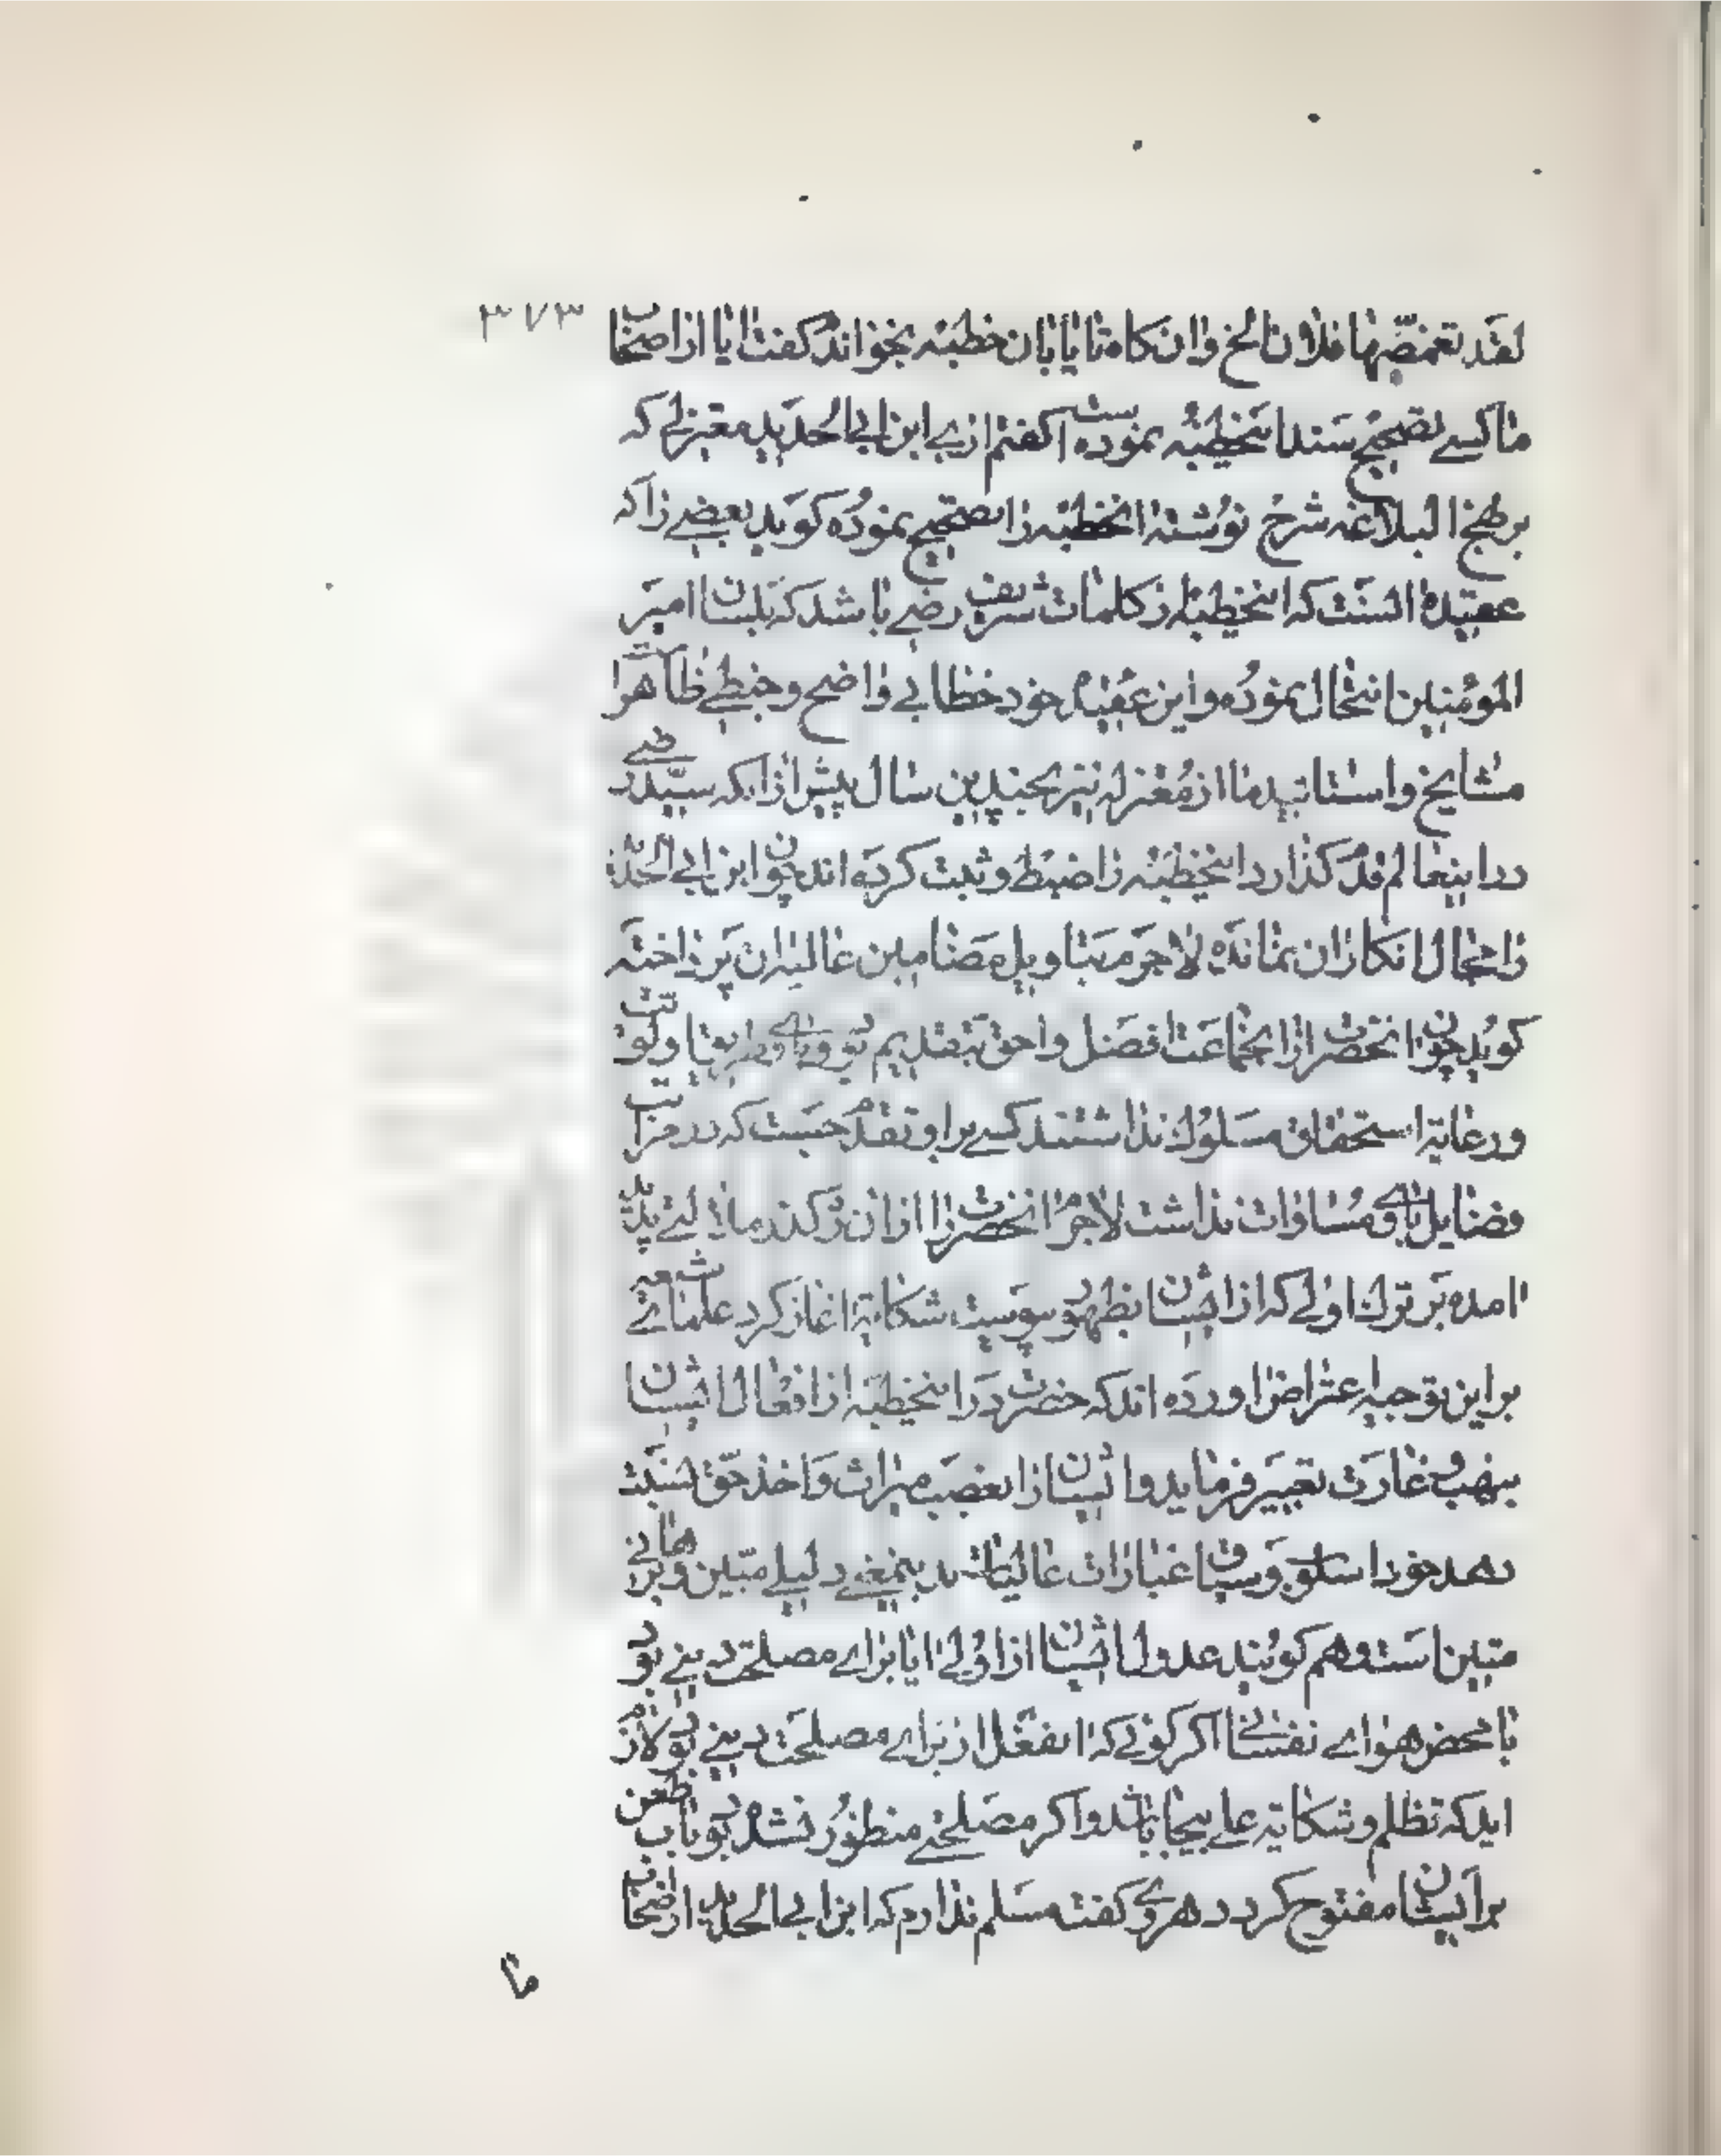 ۳۷۳
لقد تقمّصها فلان الخ وان کامتا پایان خطبه بخواند گفت ایا از اصحاب
ما کسے تصحیح سند اینخطبه نموده است گفتم ارے ابن ابی الحدید معتزلے که
بر نهج البلاغه شرح نوشته اینخطبه را تصحیح نموده گوید بعضے را که
عقیده انست که اینخطبه از کلمات شریف رضے باشد که بلسان امیر
المؤمنین انتحال نموده و این عقیده خود خطایے واضح و خبطے ظاهر است
مشایخ و اساتید ما از معتزله نیز بچندین سال پیش از انکه سیّد رضے
در اینعالم قدم گذارد اینخطبه را ضبط و ثبت کرده اند چون ابن ابی الحدید
را مجال انکار ان نمانده لاجرم بتاویل مضامین عالیه ان پرداخته
گوید چون انحضرت از انجماعت افضل و احق بتقدیم بود و پاے اولویت
و رعایة استحقاق مسلوک نداشتند کسے بر او تقدم جست که در مراتب
فضایل باوے مساوات نداشت لاجرم انحضرت را از ان رگذر ملالتے پدید
امده بر ترک اولے که از ایشان بظهور پیوست شکایة اغاز کرد علماے شیعه
بر این توجیه اعتراض اورده اند که حضرت در اینخطبه از افعال ایشان
بنهب و غارت تعبیر فرماید و ایشان را بغصب میراث و اخذ حق نسبت
دهد خود اسلوب و سیاق عبارات عالیات بدینمعنے دلیلے مبیّن و برهانے
متین است و هم گویند عدول ایشان از اولے ایا براے مصلحت دینے بود
یا محض هواے نفسانے اگر گوئے که اینفعل از براے مصلحت دینے بود لازم
اید که تظلم و شکایة علے بیجا باشد و اگر مصلحتے منظور نشده بود باب طعن
بر ایشان مفتوح گردد هروے گفت مسلم ندارم که ابن ابی الحدید از اصحاب
ما